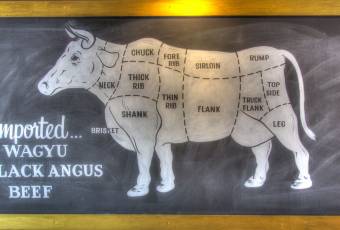 CHUCK
FORE
RIB
SIRLOIN
RUMP
NECK
THICK
RIB
THIN
RIB
FLANK
TOP
SIDE
THICK
FLANK
SHANK
BRISKET
LEG
mported...
WAGYU
LACK ANGUS
BEEF